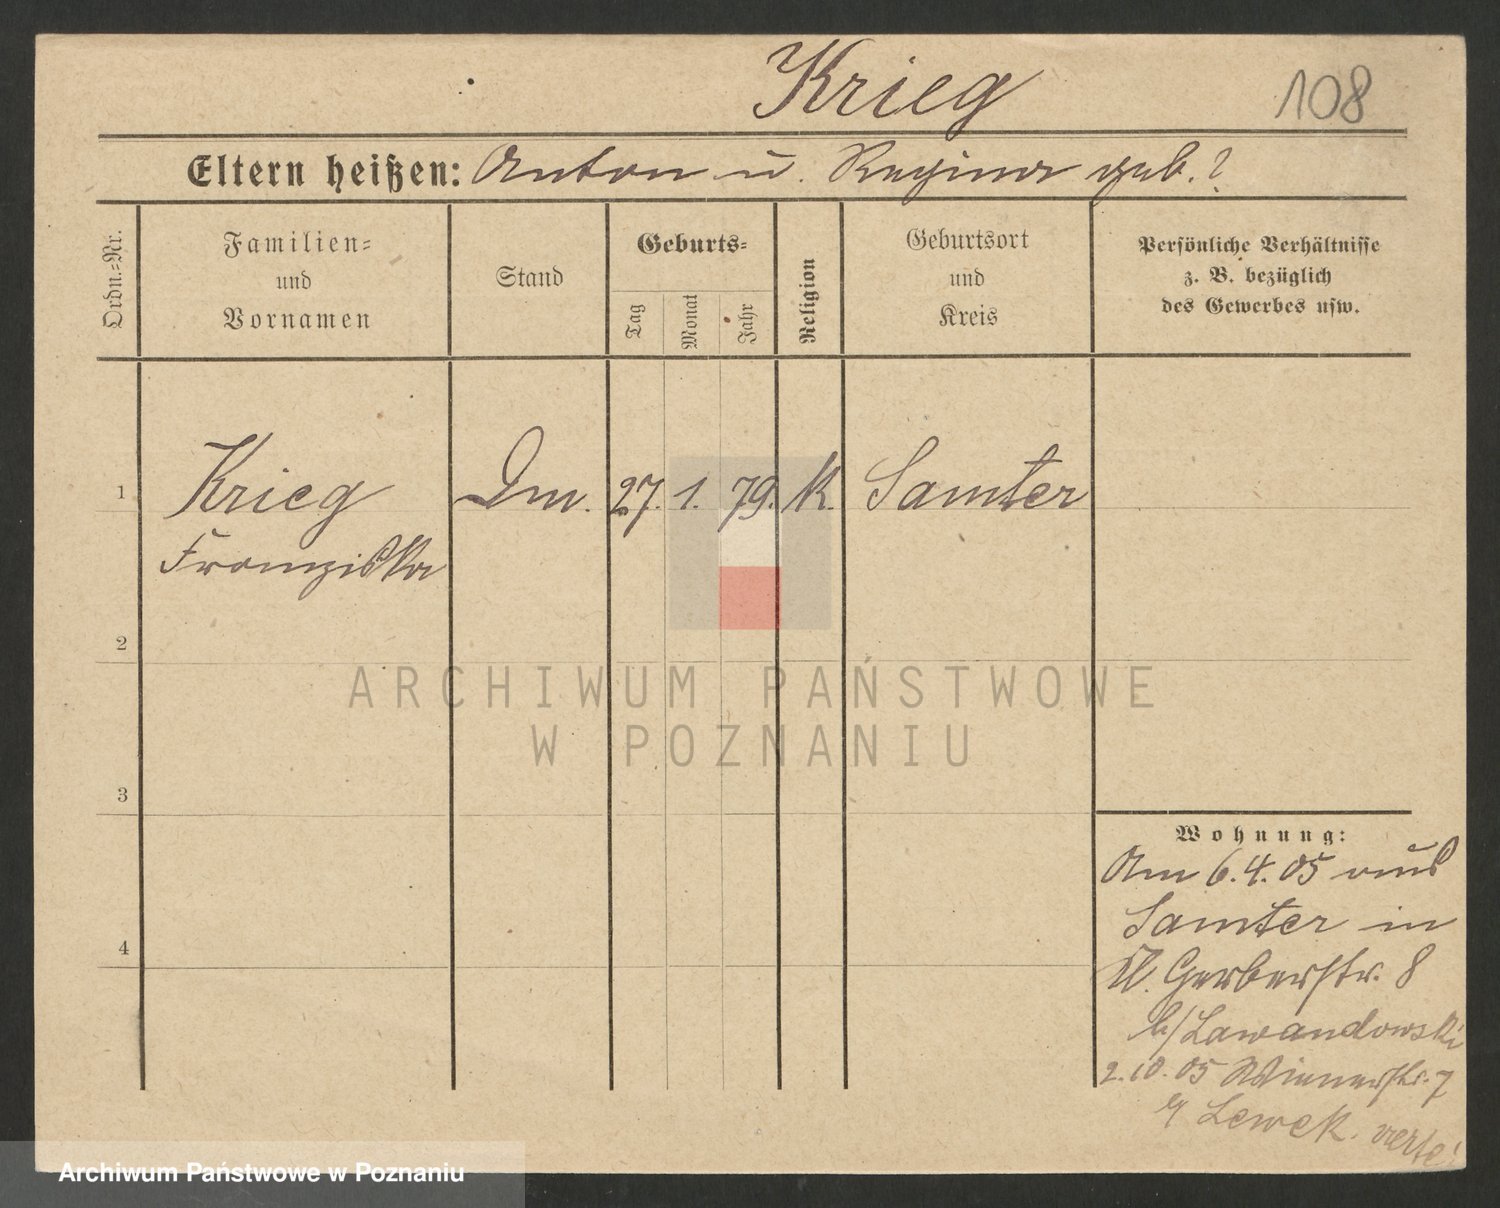 Krieg
108
Eltern heißen: Anton u. Regina geb. ?
Ordn.=Nr.
Familien=
und
Vornamen
Stand
Geburts=
Tag
Monat
Jahr
Religion
Geburtsort
und
Kreis
Persönliche Verhältnisse
z. B. bezüglich
des Gewerbes usw.
1 Krieg Dm. 27. 1. 79. K. Samter
Franziska
2
3
4
Wohnung:
Am 6.4.05 aus
Samter in
Kl. Gerberstr. 8
b/ Lawandowski
2.10.05 Wienerstr. 7
b/ Lewek.
ARCHIWUM PAŃSTWOWE
W POZNANIU
Archiwum Państwowe w Poznaniu